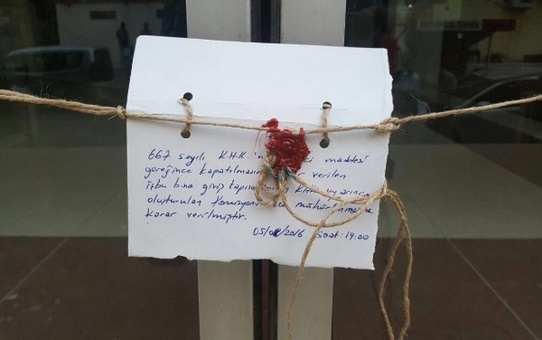 667 sayılı K.H.K 'n maddesi
gereğince kapatılmasın verilen
işbu bina giriş kapısının
oluşturulan Komisyon mühürlenmesine
karar verilmiştir.
2016 saat: 19:00